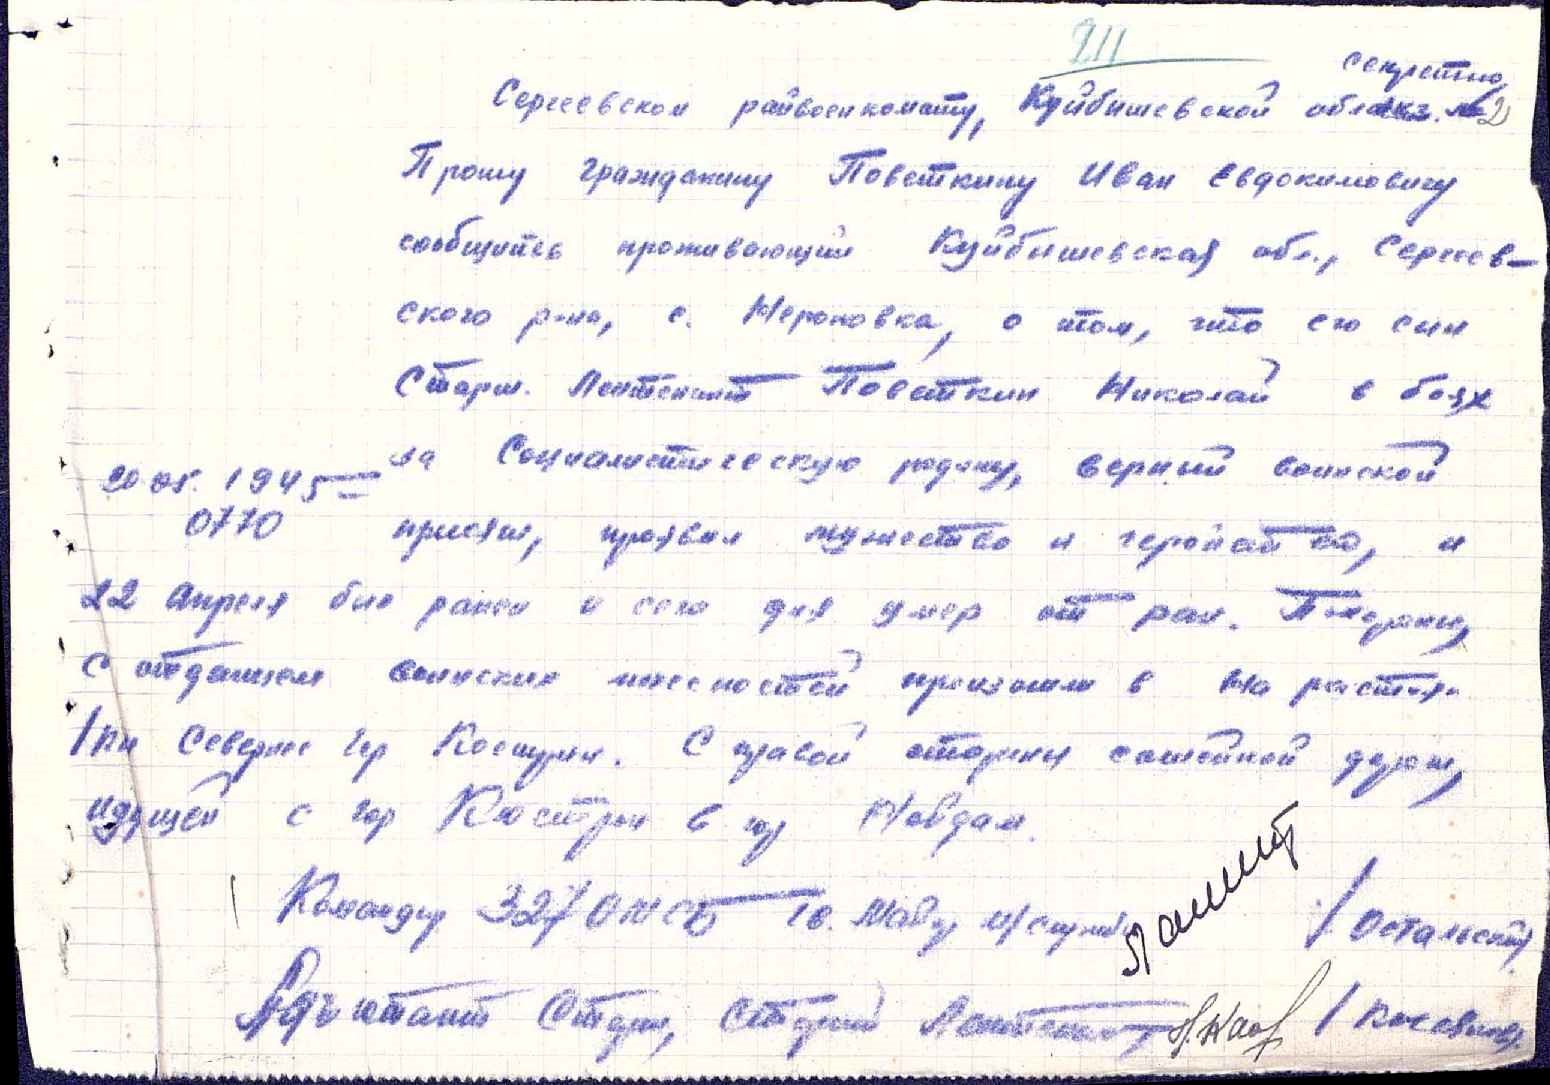 211
секретно
Сергеевском райвоенкомату, Куйбышевской
Прошу гражданину Поветкину Иван Евдокимовичу
сообщить проживающий Куйбышевская обл., Сергеев-
ского р-на, с. Нероновка, о том, что его сын
Старш. Лейтенант Поветкин Николай в боях
за Социалистическую родину, верный воинской
20.05.1945
0770
присяги, проявил мужество и геройство, и
22 апреля был ранен и сего дня умер от ран.
С отданием воинских почестей в
Севернее гор С правой стороны дороги,
идущей с гор Кюстрин в гор
Командир 327 ОМСБ Гв. Майор м/службы
Адъютант Старш, Старший Лейтенант